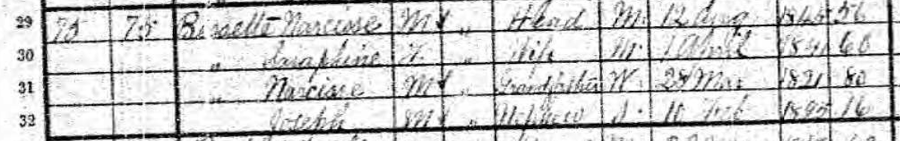 29 75 75 Bissette Narcisse M " Head M. 12 Aug 1845 56
30 " Seraphine F " Wife M. 1 April 1841 60
31 " Narcisse M " Grandfather W. 28 Mar 1821 80
32 Joseph M " Nephew S. 10 Feb 1895 16